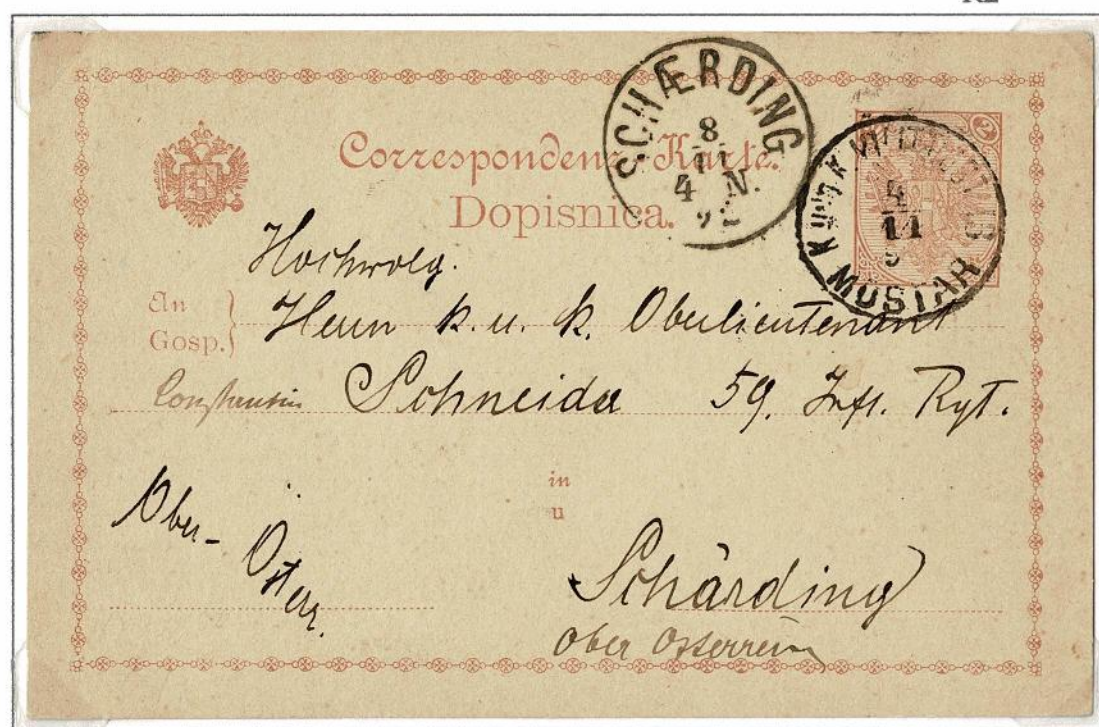 Correspondenz-Karte.
Dopisnica.
SCHÆRDING
8
11
4 N.
92
2
K UND K MILIT. POST
MOSTAR
4
11
9
Hochwolg.
An
Gosp.
Herrn k. u. k. Oberlieutenant
Constantin Schneider 59. Inft. Rgt.
in
u
Ober-
Österr.
Schärding
Ober Österreich